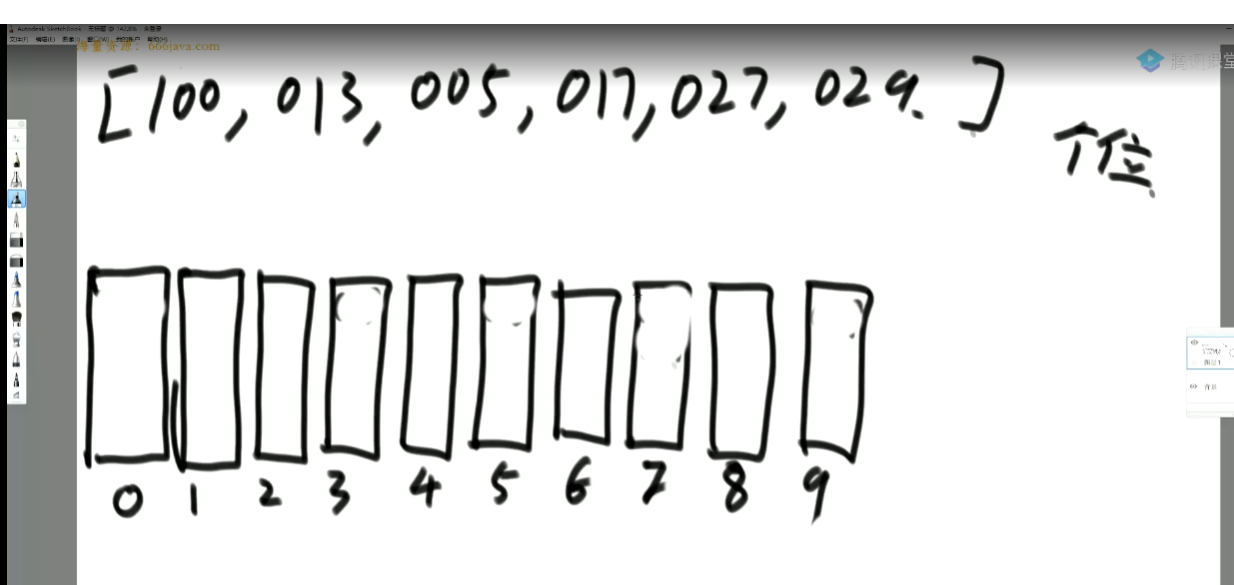 Autodesk SketchBook
文件(F) 编辑(E) 图像(I) 窗口(W) 我的账户 帮助(H)
海量资源：666java.com
腾讯课堂
[100, 013, 005, 017, 027, 029. ]
个位
0 1 2 3 4 5 6 7 8 9